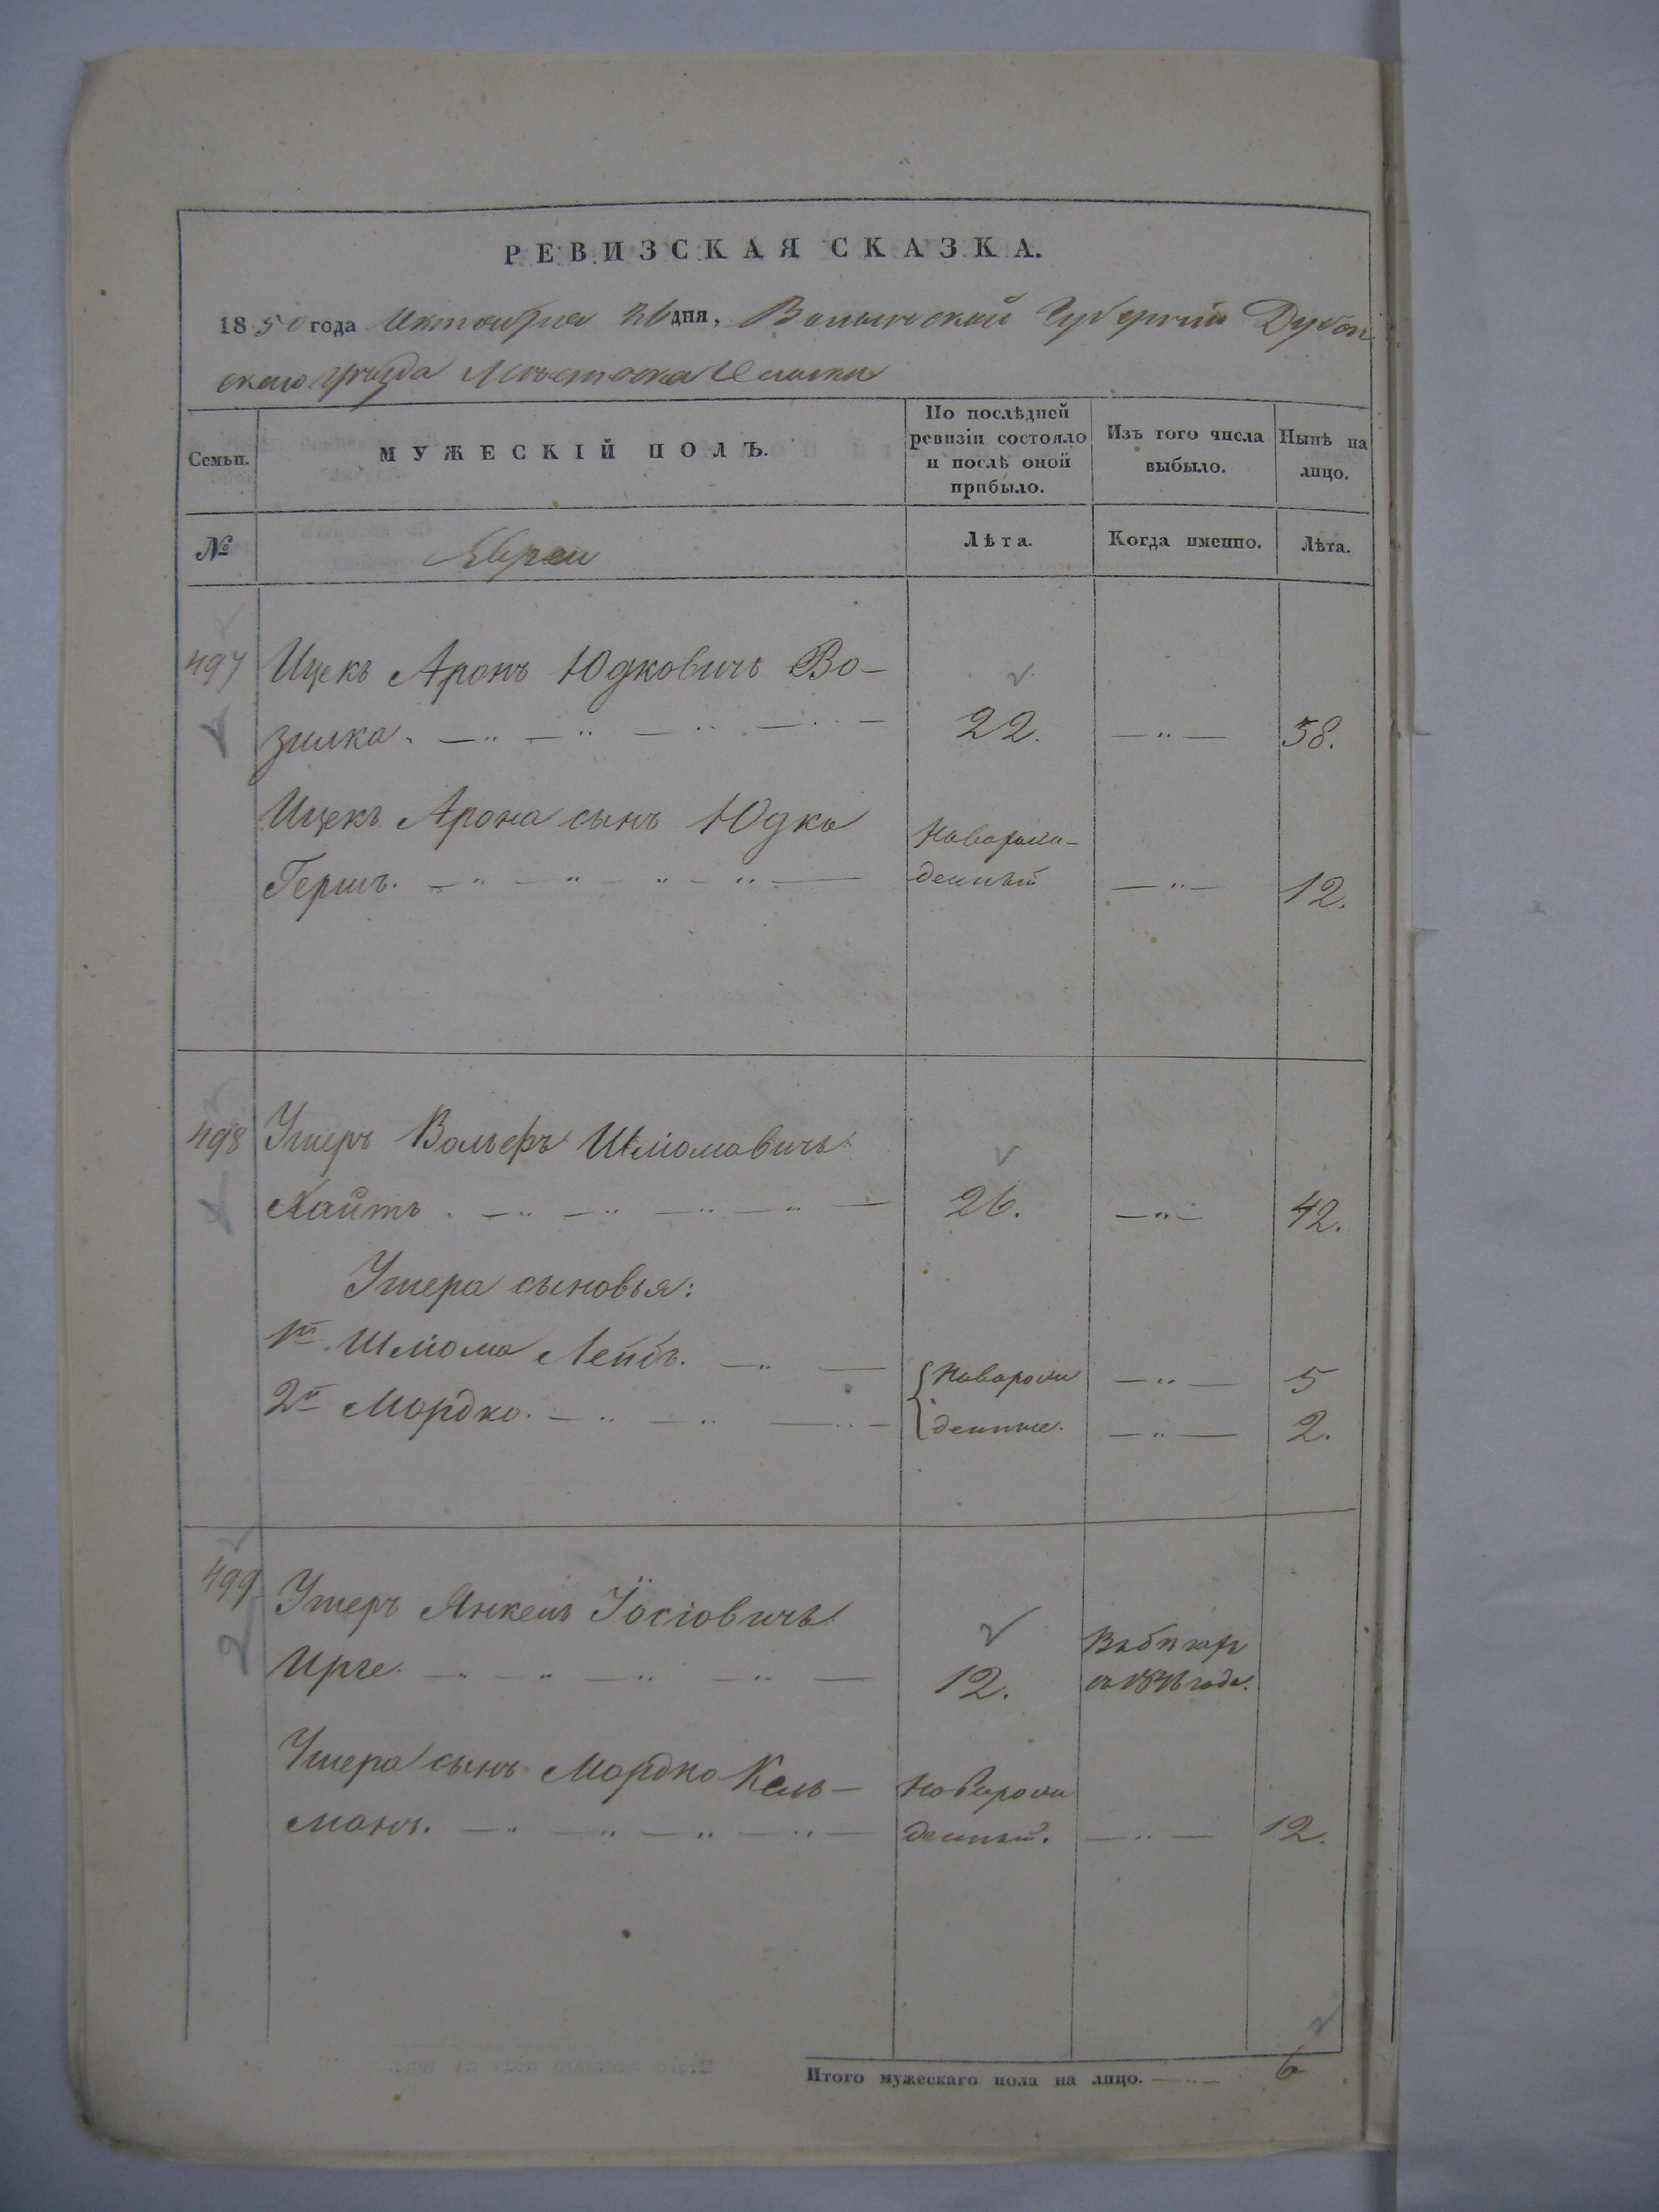 РЕВИЗСКАЯ СКАЗКА.
1850 года Октября 26 дня, Волынской Губернии Дубен
скаго уезда Местечка
Семьи. МУЖЕСКІЙ ПОЛЪ. По послѣдней ревизіи состояло и послѣ оной прибыло. Изъ того числа выбыло. Нынѣ на лицо.
№ Евреи Лѣта. Когда именно. Лѣта.
497 Ицекъ Аронъ Юдковичъ Во-
зилка. 22. 38.
Ицекъ Арона сынъ Юдка Новорож-
Гершъ. денный 12.
498 Ушеръ Вольфъ Шліомовичъ
Хайтъ. 26. 42.
Ушера сыновья:
1й. Шліома Лейбъ. Новорож 5
2й Мордко. денные. 2.
499 Ушеръ Янкель Іосіовичъ
Ирге. 12. въ 1846 годе.
Ушера сынъ Мордко Кель- Новорож
манъ. денный. 12.
Итого мужескаго пола на лицо. 6